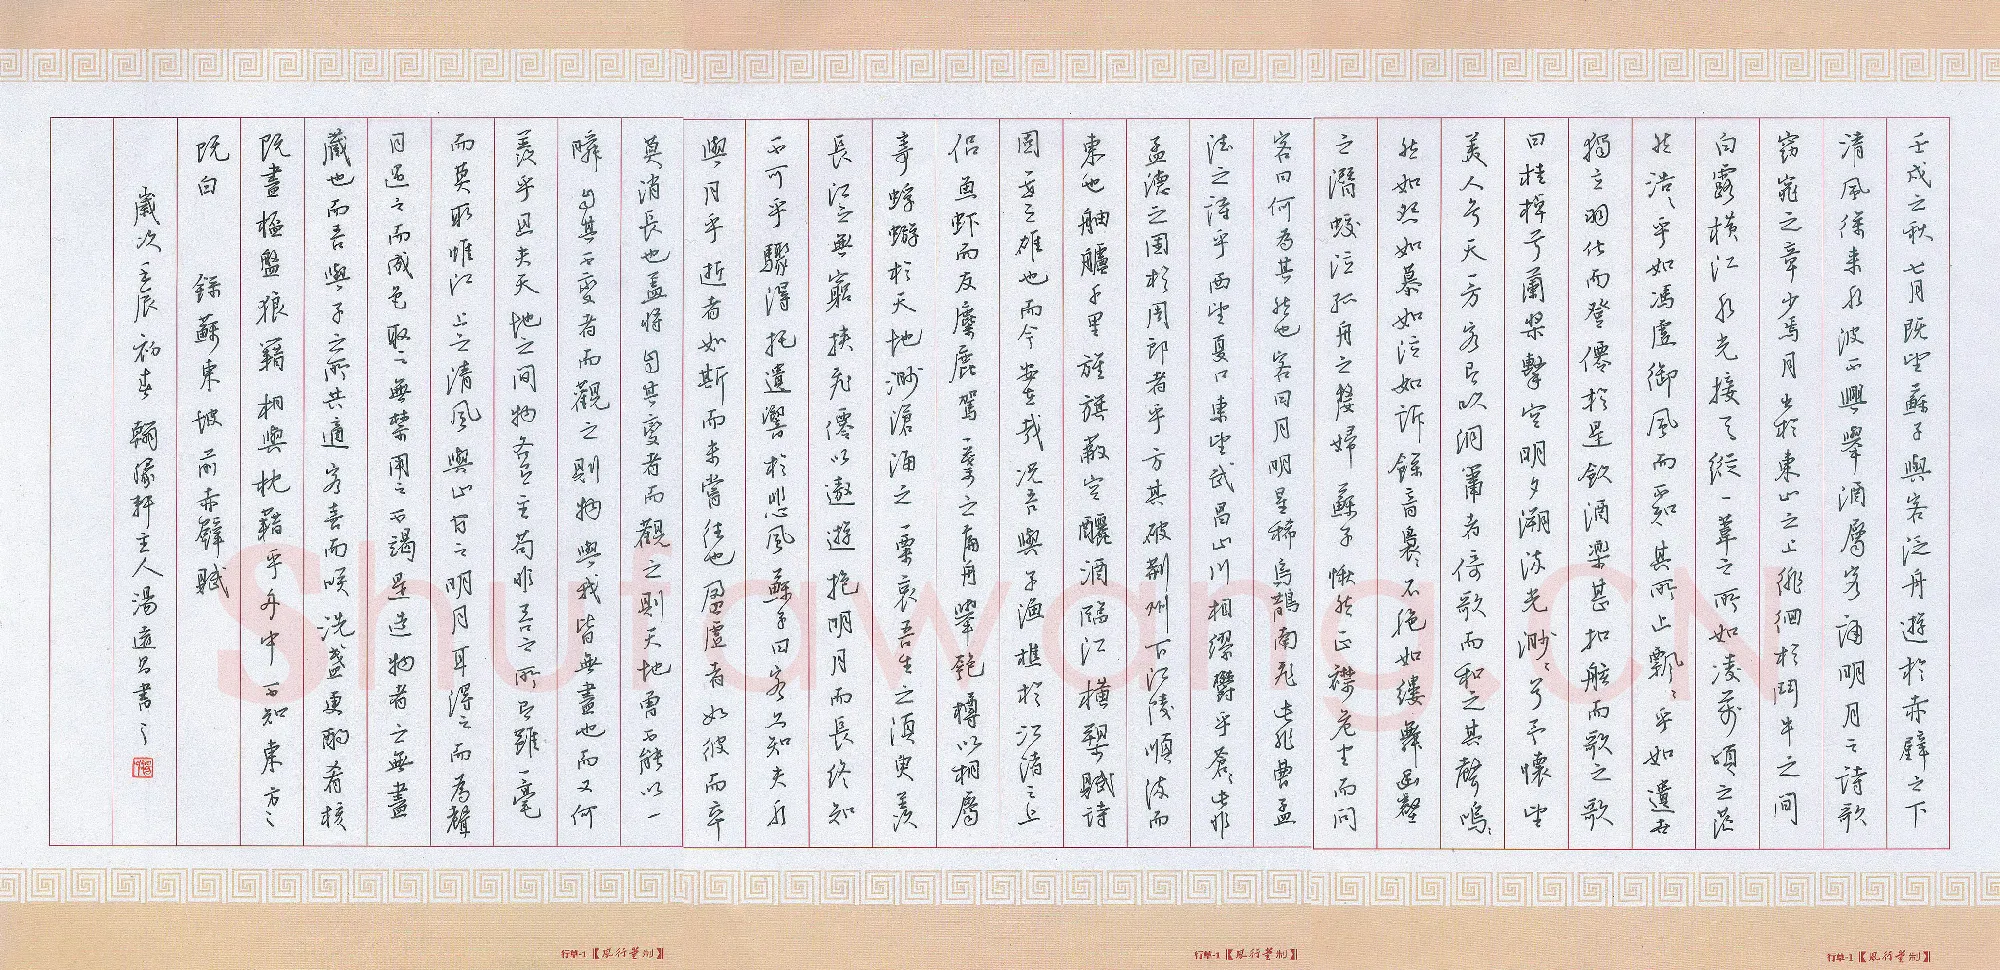 壬戌之秋七月既望蘇子與客泛舟遊於赤壁之下
清風徐来水波不興舉酒屬客誦明月之詩歌
窈窕之章少焉月出於東山之上徘徊於鬥牛之間
白露橫江水光接天縱一葦之所如凌萬頃之茫
然浩〻乎如馮虛御風而不知其所止飄〻乎如遺世
獨立羽化而登僊於是飲酒樂甚扣舷而歌之歌
曰桂棹兮蘭槳擊空明兮溯流光渺〻兮予懷望
美人兮天一方客有吹洞簫者倚歌而和之其聲嗚〻
然如怨如慕如泣如訴餘音裊〻不絶如縷舞幽壑
之潛蛟泣孤舟之嫠婦蘇子愀然正襟危坐而問
客曰何為其然也客曰月明星稀烏鵲南飛此非曹孟
德之詩乎西望夏口東望武昌山川相繆鬱乎蒼〻此非
孟德之困於周郎者乎方其破荆州下江陵順流而
東也舳艫千里旌旗蔽空釃酒臨江橫槊賦詩
固一世之雄也而今安在哉況吾與子漁樵於江渚之上
侣魚虾而友麋鹿駕一葉之扁舟舉匏樽以相屬
寄蜉蝣於天地渺滄海之一粟哀吾生之須臾羨
長江之無窮挾飛僊以遨遊抱明月而長終知
不可乎驟得托遺響於悲風蘇子曰客亦知夫水
與月乎逝者如斯而未嘗往也盈虛者如彼而卒
莫消長也蓋將自其變者而觀之則天地曾不能以一
瞬自其不變者而觀之則物與我皆無盡也而又何
羨乎且夫天地之間物各有主苟非吾之所有雖一毫
而莫取惟江上之清風與山間之明月耳得之而為聲
目遇之而成色取之無禁用之不竭是造物者之無盡
藏也而吾與子之所共適客喜而咲洗盞更酌肴核
既盡杯盤狼籍相與枕藉乎舟中不知東方之
既白　錄蘇東坡前赤壁賦
歲次壬辰初春翰緣軒主人湯遠呂書之
行草-1【風行筆制】
行草-1【風行筆制】
行草-1【風行筆制】
Shufawang.CN